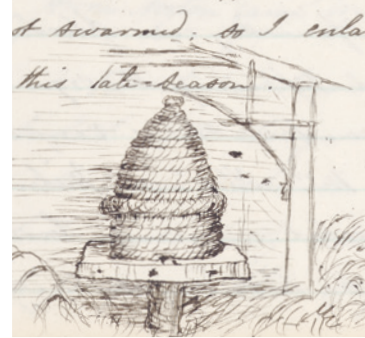 ot swarmed, so I enla
this late season.